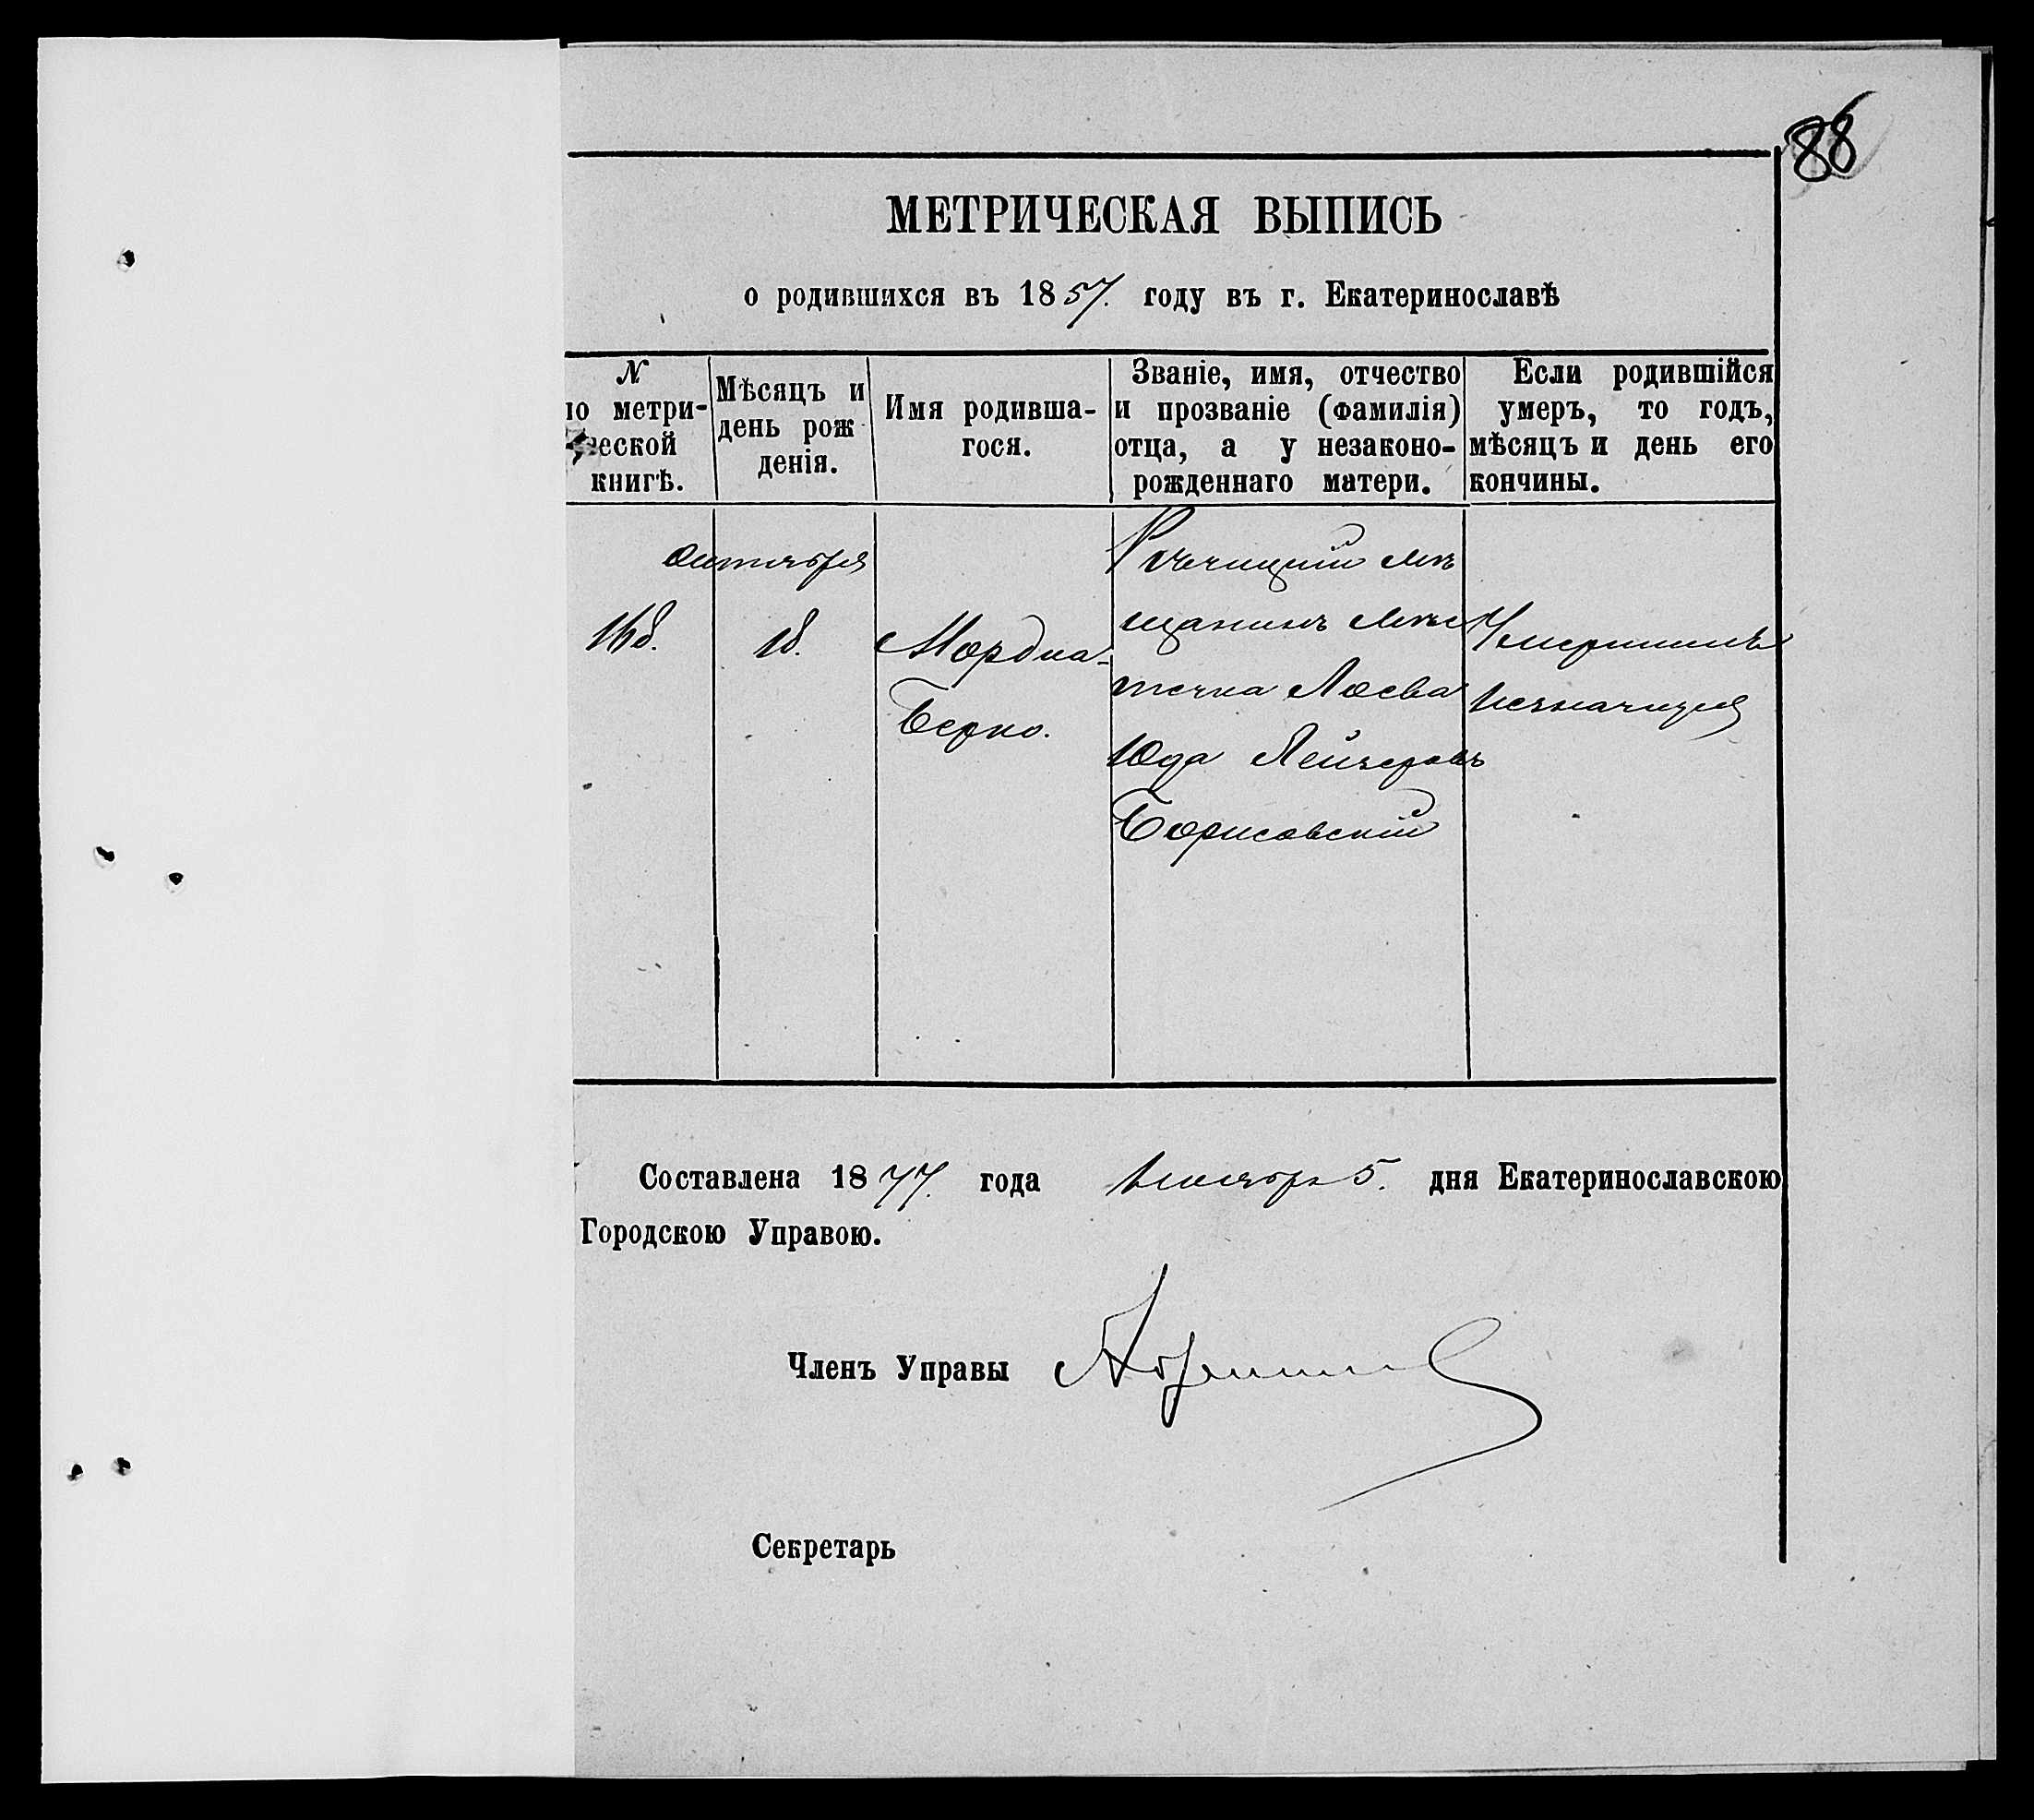 88
МЕТРИЧЕСКАЯ ВЫПИСЬ
о родившихся въ 1857. году въ г. Екатеринославѣ
N
по метри-
ческой
книгѣ.
Мѣсяцъ и
день рож
денія.
Имя родивша-
гося.
Званіе, имя, отчество
и прозваніе (фамилія)
отца, а у незаконо-
рожденнаго матери.
Если родившійся
умеръ, то годъ,
мѣсяцъ и день его
кончины.
Октября
18.
Мордка-
Берко.
Речицкій мѣ
щанинъ Мѣс
течка Лоева
Юда Лейзеровъ
Борисовскій
Умершимъ
незначится
Составлена 1877. года Ноября 5. дня Екатеринославскою
Городскою Управою.
Членъ Управы
Секретарь